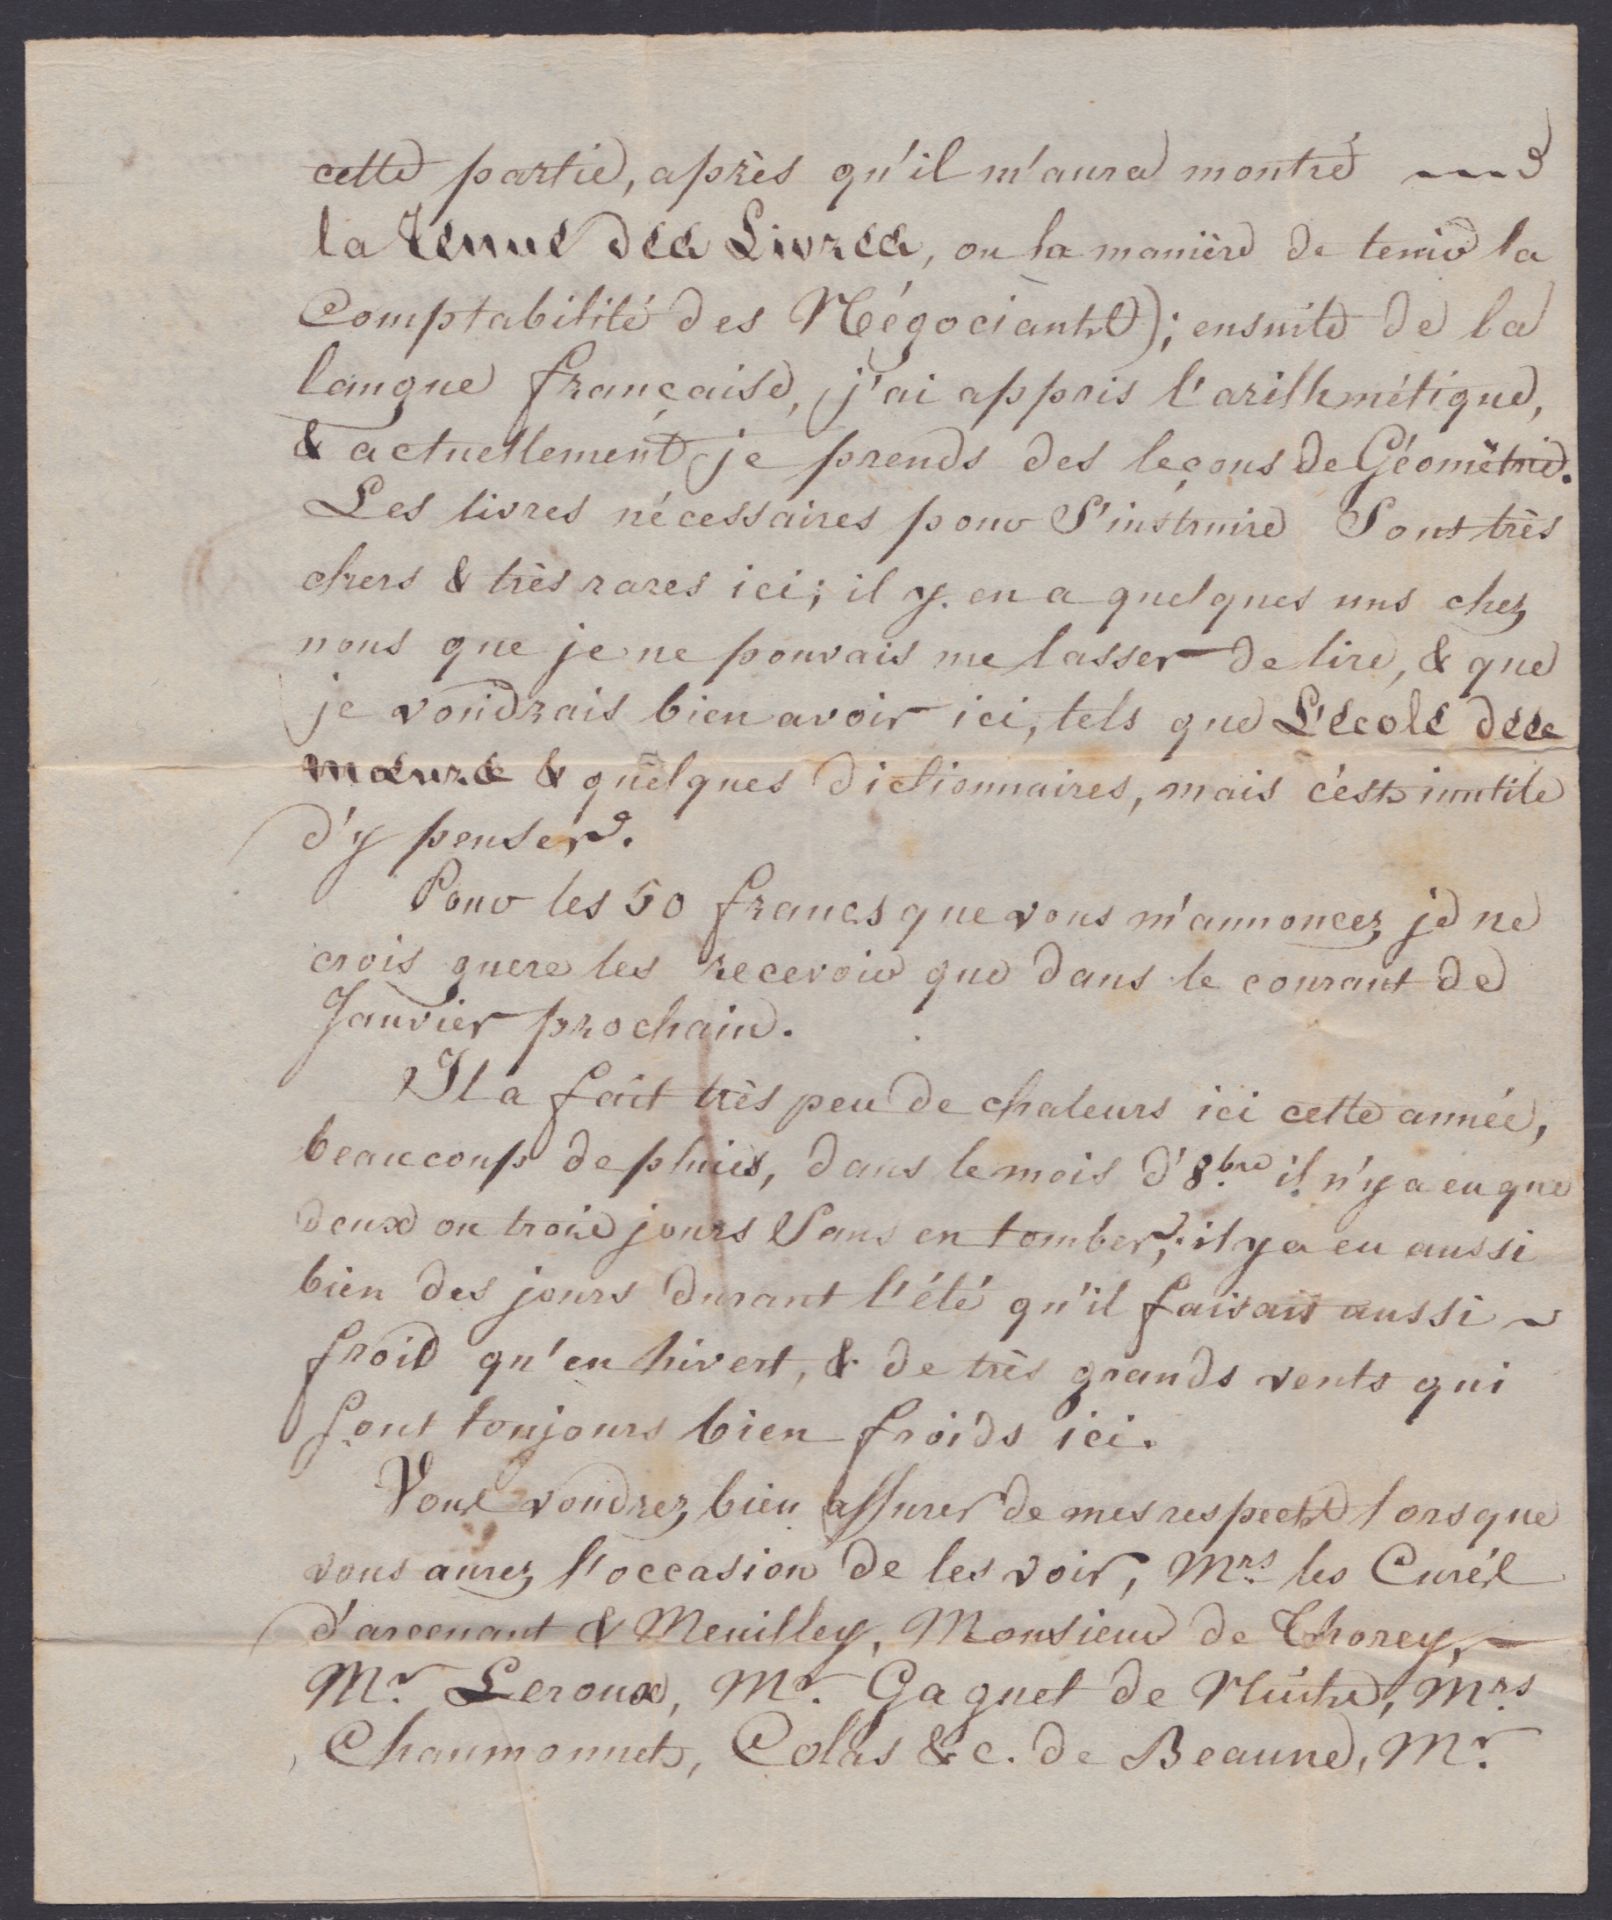 cette partie, après qu'il m'aura montré
la Tenue des Livres, ou la manière de tenir la
Comptabilité des Négociants); ensuite de la
langue française, j'ai appris l'arithmétique,
& actuellement je prends des leçons de Géométrie.
Les livres nécessaires pour S'instruire Sont très
chers & très rares ici; il y en a quelques uns chez
nous que je ne pouvais me lasser de lire, & que
je voudrais bien avoir ici, tels que L'école des
mœurs & quelques dictionnaires, mais c'est inutile
d'y penser.
Pour les 50 francs que vous m'annoncez je ne
crois guere les recevoir que dans le courant de
Janvier prochain.
Il a fait très peu de chaleurs ici cette année,
beaucoup de pluies, dans le mois d'8.bre il n'y a eu que
deux ou trois jours Sans en tomber; il y a eu aussi
bien des jours durant l'été qu'il faisait aussi
froid qu'en hivert, & de très grands vents qui
sont toujours bien froids ici.
Vous voudrez bien assurer de mes respects lorsque
vous aurez l'occasion de les voir, Mrs. les Curés
d'arcenant & Meuilley, Monsieur de Thorey,
Mr. Leroux, Mr. Gagnet de Nuits, Mrs.
Chaumonnet, Colas &c. de Beaune, Mr.